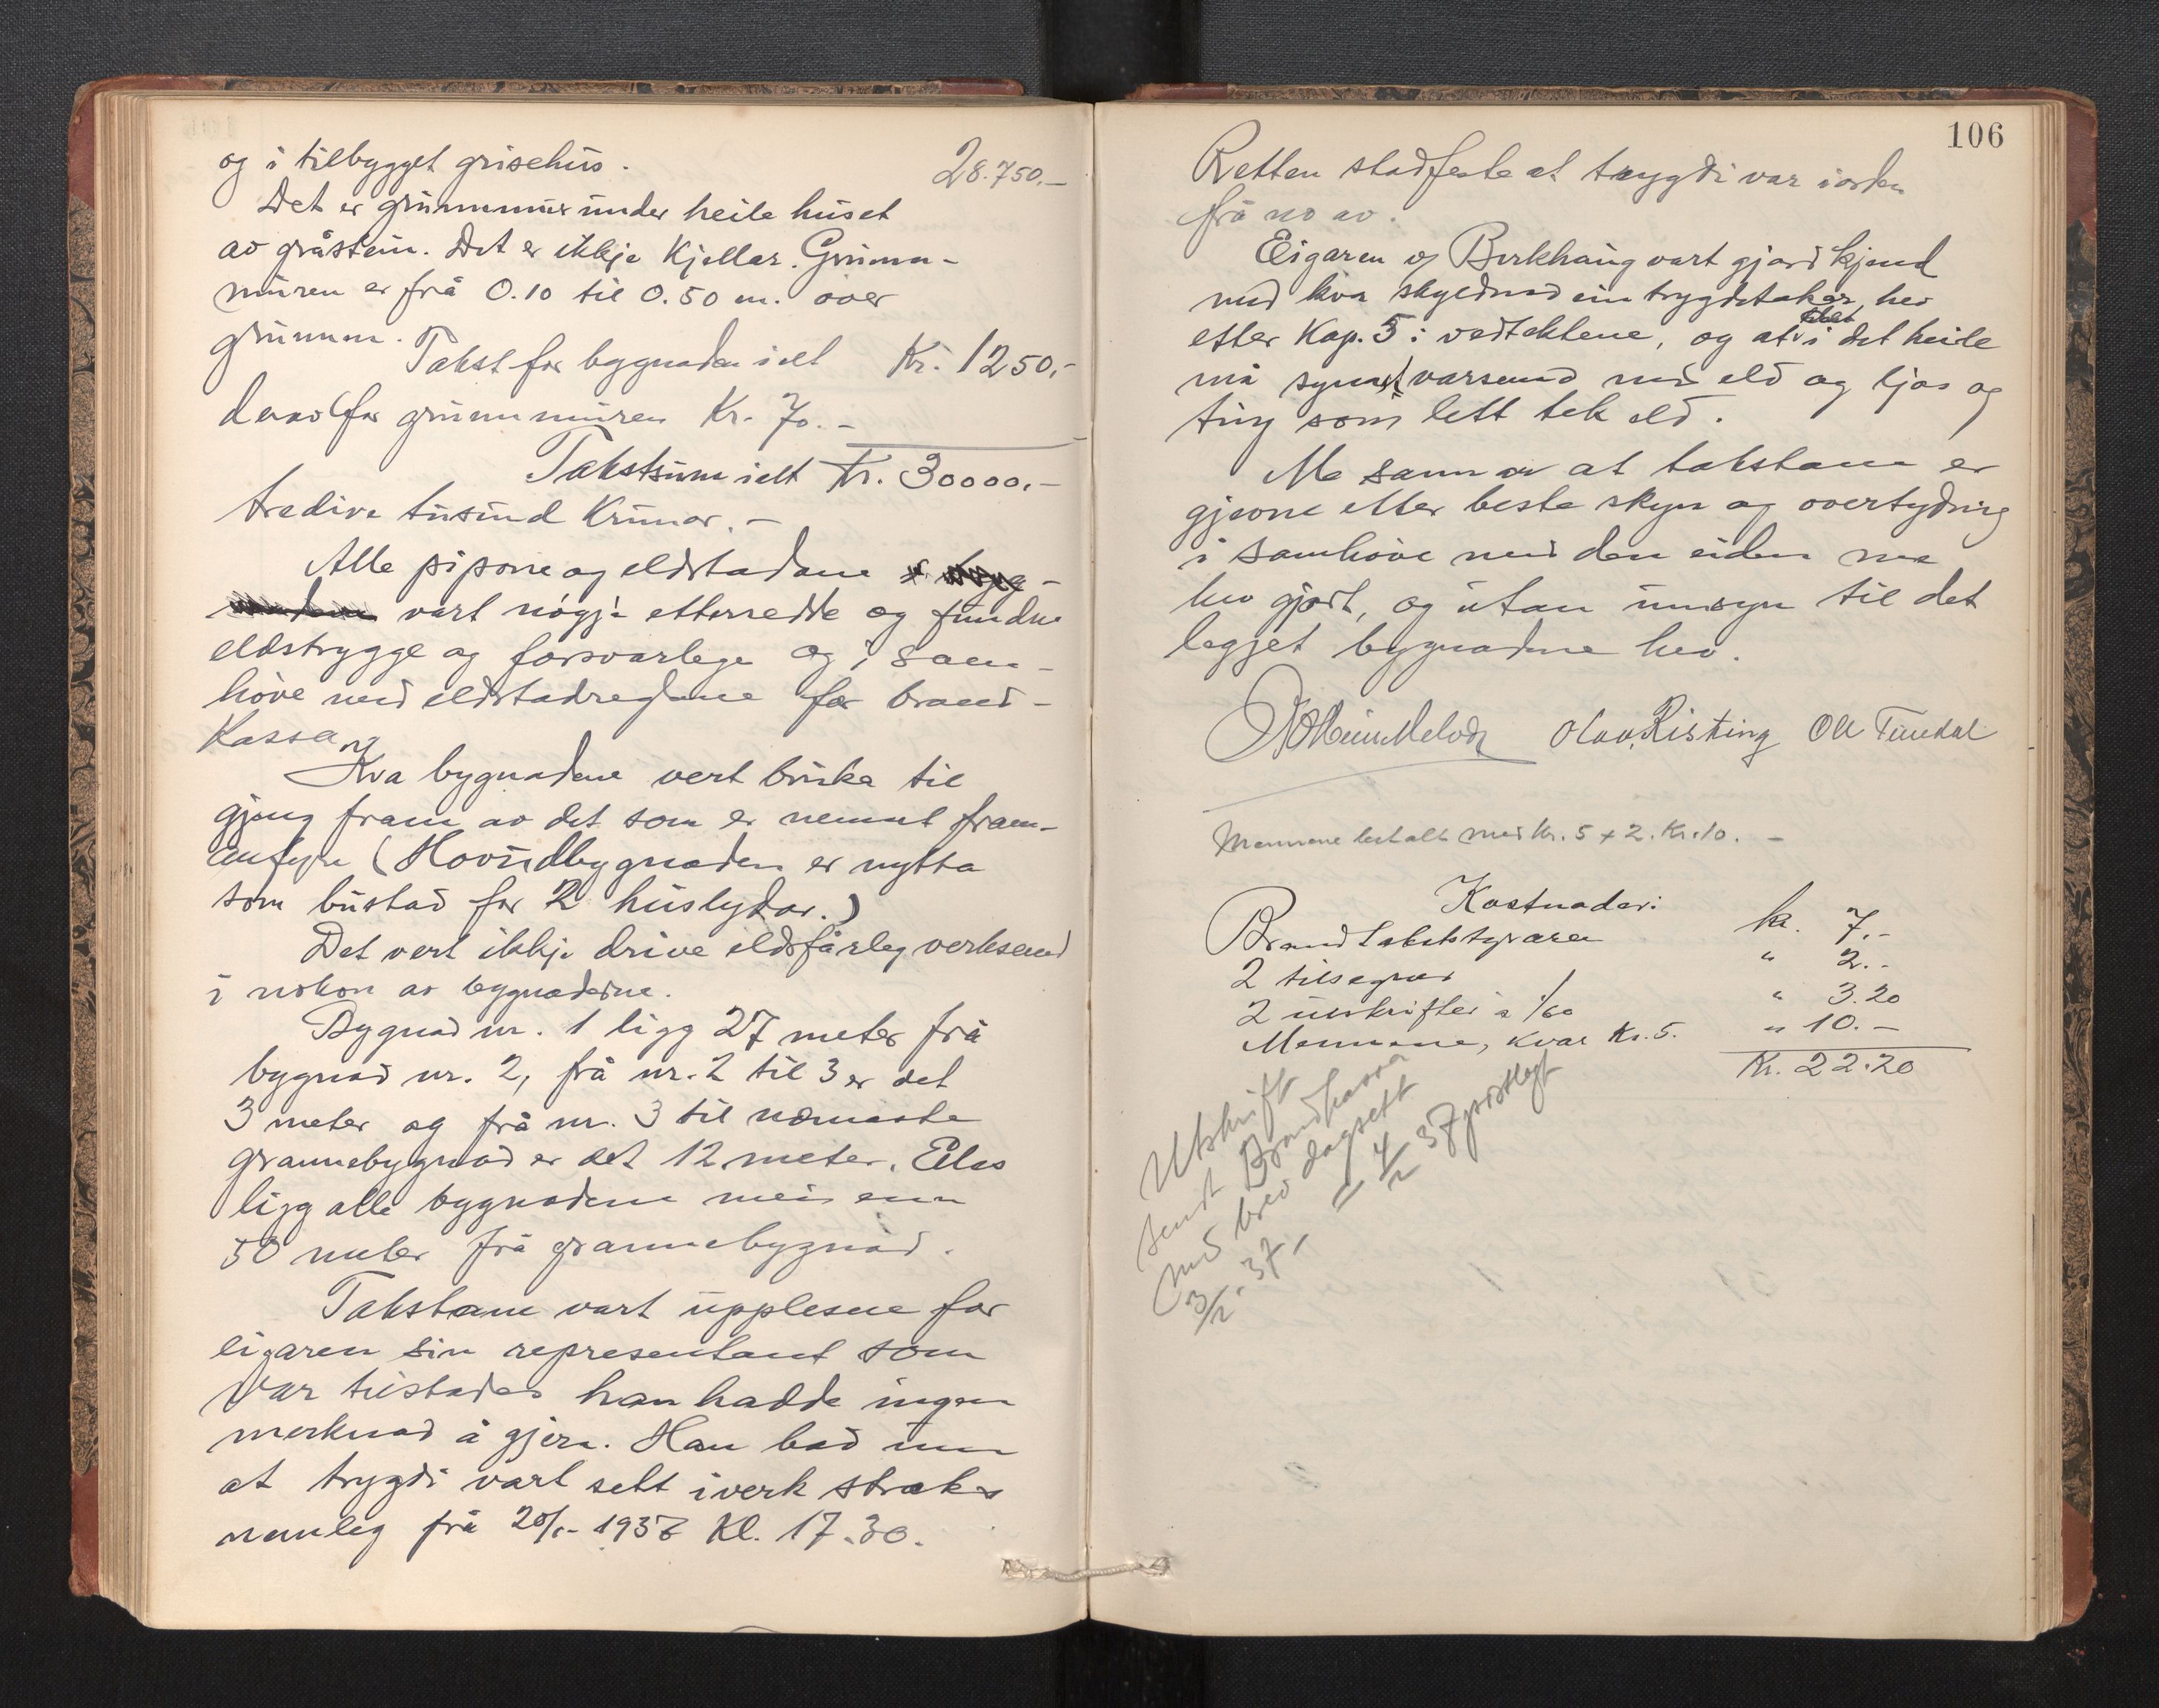 og i tilbygget grisehus.
28.750.-
Det er grunnmur under heile huset
av gråstein. Det er ikkje Kjellar. Grunn-
muren er frå 0.10 til 0.50 m. over
grunnen.
Takst for bygnaden i alt Kr. 1250,-
derav for grunnmuren Kr. 70.-
Takstsum i alt Kr. 30000.-
tredive tusund Krunor.-
Alle pipone og eldstadane
vart nøgje etterredde og fundne
eldstrygge og forsvarlege og i sam-
høve med eldstadreglane for brand-
Kassa.
Kva bygnadene vert bruka til
gjeng fram av det som er nemnt fram-
anfyre (Hovudbygnaden er nytta
som bustad for 2 huslydar.)
Det vert ikkje drive eldsfårleg verksemd
i nokon av bygnaderne.
Bygnad nr. 1 ligg 27 meter frå
bygnad nr. 2, frå nr. 2 til 3 er det
3 meter og frå nr. 3 til næmaste
grannebygnad er det 12 meter. Elles
ligg alle bygnadene meir enn
50 meter frå grannebygnad.
Takstane vart upplesne for
eigaren sin representant som
var tilstades han hadde ingen
merknad å gjera. Han bad um
at trygdi vart sett i verk straks
nemleg frå 20/1- 1937 Kl. 17.30.
106
Retten stadfeste at trygdi var i orden
frå no av.
Eigaren v/ Birkhaug vart gjord kjend
med kva skyldnad ein trygdetakar hev
etter Kap. 5 i vedtektene, og at i det heile
må synast varsemd med eld og ljos og
ting som lett tek eld.
Me sannar at takstane er
gjevne etter beste skyn og overtyding
i samhøve med den eiden me
hev gjort, og utan umsyn til det
legjet bygnadene hev.
Olav Risting Ole Tundal
Mennene betalt med Kr. 5 + 2. Kr. 10.-
Kostnader:
Brandtakststyraren kr. 7.-
2 tilsegner " 2.-
2 utskrifter à 1/60 " 3.20
Mennene, kvar Kr. 5. " 10.-
Kr. 22.20
Utskrift
sendt Brandkassa
med brev dagsett
3/2. 37.-
= 4/2 37 postlagt